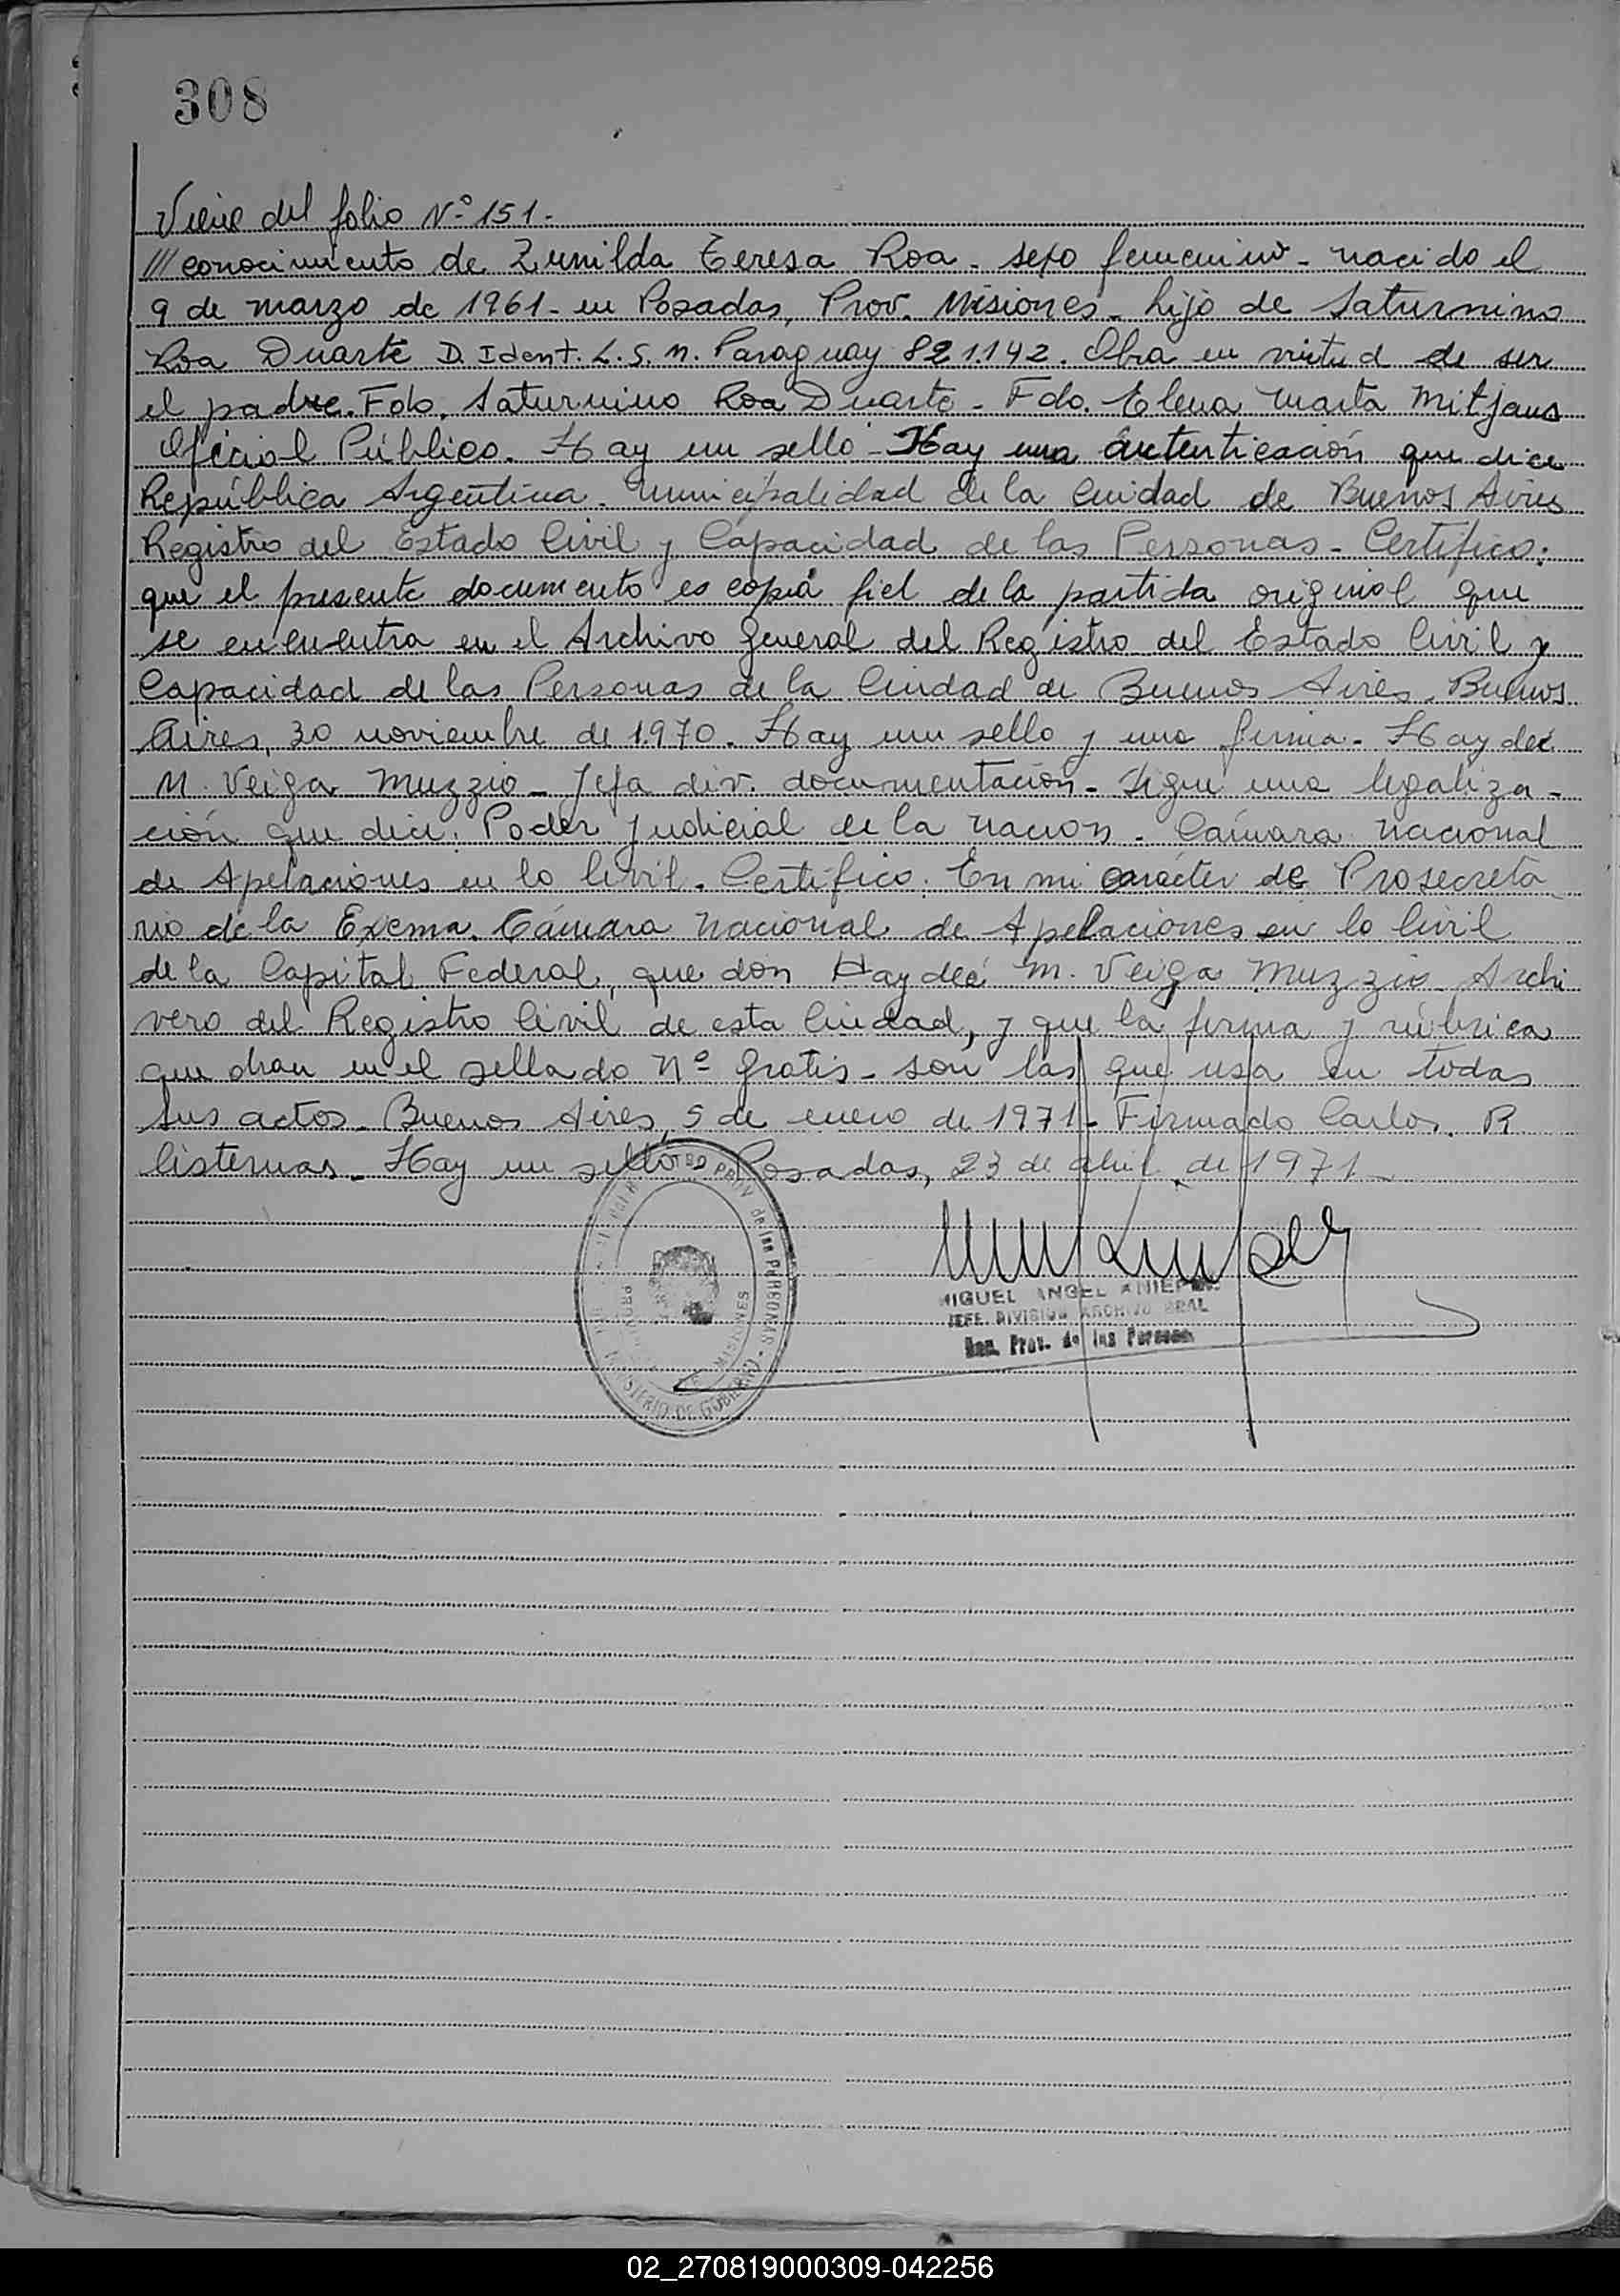 308
Viene del folio Nº 151-
///conocimiento de Zunilda Teresa Roa - sexo femenino - nacido el
9 de marzo de 1961 - en Posadas, Prov. Misiones - hijo de Saturnino
Roa Duarte D. Ident. L. S. N. Paraguay 821.142. Obra en virtud de ser
el padre. Fdo. Saturnino Roa Duarte - Fdo. Elena Marta Mitjans
Oficial Público. Hay un sello - Hay una autenticación que dice
República Argentina. Municipalidad de la Ciudad de Buenos Aires
Registro del Estado Civil y Capacidad de las Personas - Certifico:
que el presente documento es copia fiel de la partida original que
se encuentra en el Archivo General del Registro del Estado Civil y
Capacidad de las Personas de la Ciudad de Buenos Aires. Buenos
Aires, 30 noviembre de 1970. Hay un sello y una firma - Haydeé
M. Veiga Muzzio - Jefa div. documentación - Sigue una legaliza-
ción que dice: Poder Judicial de la Nación - Cámara Nacional
de Apelaciones en lo Civil. Certifico. En mi carácter de Prosecreta
rio de la Excma. Cámara Nacional de Apelaciones en lo Civil
de la Capital Federal, que don Haydeé M. Veiga Muzzio Archi
vero del Registro Civil de esta Ciudad, y que la firma y rúbrica
que obran en el sellado Nº gratis - son las que usa en todas
sus actos - Buenos Aires, 5 de enero de 1971 - Firmado Carlos R
Cisternas - Hay un sello Posadas, 23 de abril de 1971 -
MIGUEL ANGEL
JEFE DIVISION ARCHIVO GRAL
Prov. de las Personas
PROV de las PERSONAS
MISIONES
MINISTERIO DE GOBIERNO
02_270819000309-042256